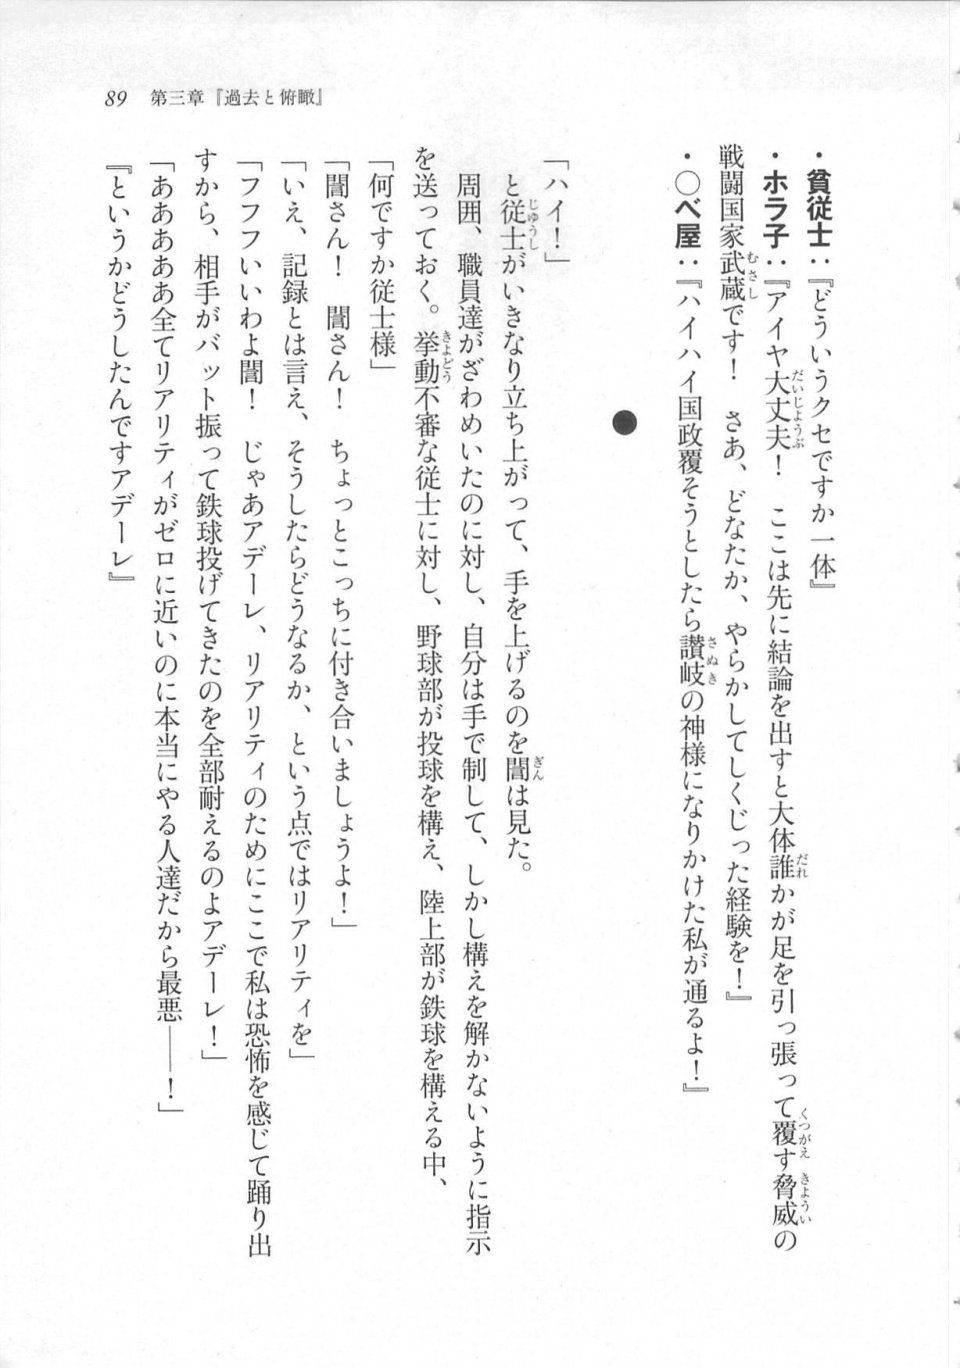 89 第三章『過去と俯瞰』
・貧従士：『どういうクセですか一体』
・ホラ子：『アイヤ大丈夫！　ここは先に結論を出すと大体誰かが足を引っ張って覆す脅威の
戦闘国家武蔵です！　さあ、どなたか、やらかしてしくじった経験を！』
・○べ屋：『ハイハイ国政覆そうとしたら讃岐の神様になりかけた私が通るよ！』
●
「ハイ！」
と従士がいきなり立ち上がって、手を上げるのを誾は見た。
周囲、職員達がざわめいたのに対し、自分は手で制して、しかし構えを解かないように指示
を送っておく。挙動不審な従士に対し、野球部が投球を構え、陸上部が鉄球を構える中、
「何ですか従士様」
「誾さん！　誾さん！　ちょっとこっちに付き合いましょうよ！」
「いえ、記録とは言え、そうしたらどうなるか、という点ではリアリティを」
「フフフいいわよ誾！　じゃあアデーレ、リアリティのためにここで私は恐怖を感じて踊り出
すから、相手がバット振って鉄球投げてきたのを全部耐えるのよアデーレ！」
「ああああ全てリアリティがゼロに近いのに本当にやる人達だから最悪――！」
『というかどうしたんですアデーレ』